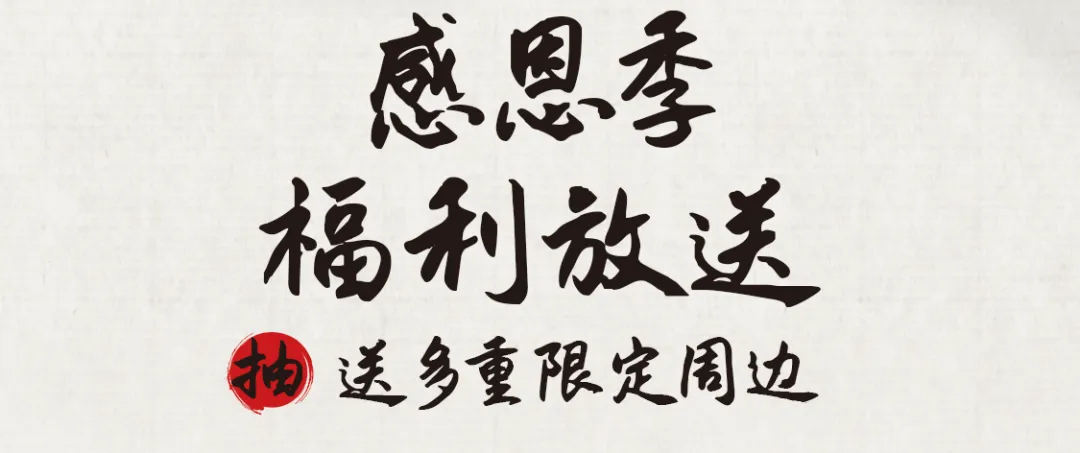 感恩季
福利放送
抽 送多重限定周边